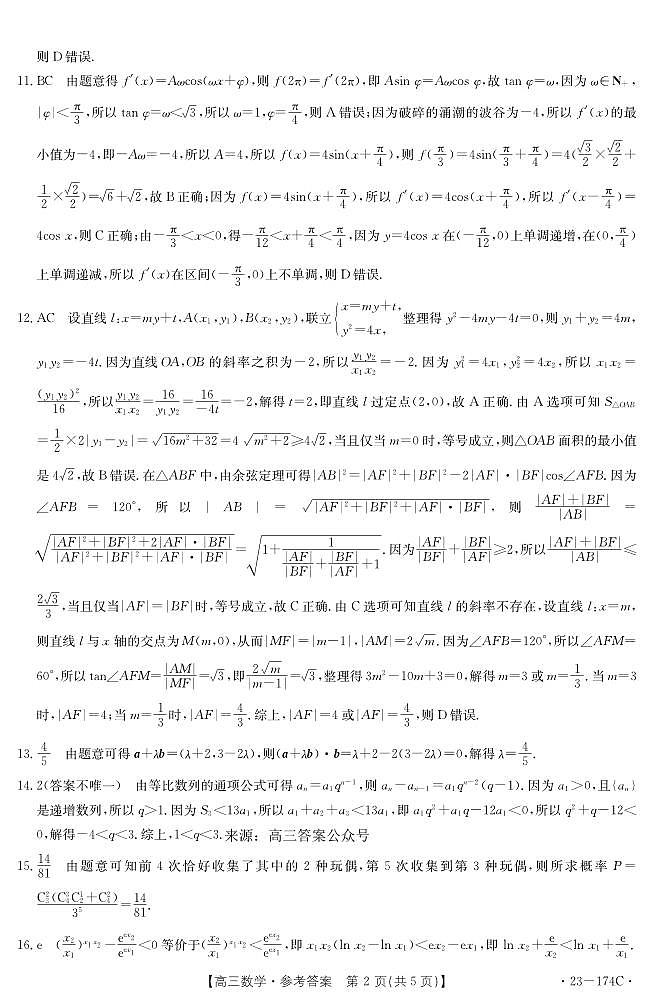 则 D 错误.
11. BC 由题意得 f′(x)=Aωcos(ωx+φ),则 f(2π)=f′(2π),即 Asin φ=Aωcos φ,故 tan φ=ω,因为 ω∈N₊,
|φ|<π/3,所以 tan φ=ω<√3,所以 ω=1,φ=π/4,则 A 错误;因为破碎的涌潮的波谷为−4,所以 f′(x)的最
小值为−4,即−Aω=−4,所以 A=4,所以 f(x)=4sin(x+π/4),则 f(π/3)=4sin(π/3+π/4)=4(√3/2×√2/2+
1/2×√2/2)=√6+√2,故 B 正确;因为 f(x)=4sin(x+π/4),所以 f′(x)=4cos(x+π/4),所以 f′(x−π/4)=
4cos x,则 C 正确;由−π/3<x<0,得−π/12<x+π/4<π/4,因为 y=4cos x 在(−π/12,0)上单调递增,在(0,π/4)
上单调递减,所以 f′(x)在区间(−π/3,0)上不单调,则 D 错误.
12. AC 设直线 l:x=my+t,A(x₁,y₁),B(x₂,y₂),联立{x=my+t, y²=4x, 整理得 y²−4my−4t=0,则 y₁+y₂=4m,
y₁y₂=−4t. 因为直线 OA,OB 的斜率之积为−2,所以 y₁y₂/x₁x₂=−2. 因为 y₁²=4x₁,y₂²=4x₂,所以 x₁x₂=
(y₁y₂)²/16,所以 y₁y₂/x₁x₂=16/y₁y₂=16/−4t=−2,解得 t=2,即直线 l 过定点(2,0),故 A 正确. 由 A 选项可知 S△OAB
=1/2×2|y₁−y₂|=√(16m²+32)=4√(m²+2)≥4√2,当且仅当 m=0 时,等号成立,则△OAB 面积的最小值
是 4√2,故 B 错误. 在△ABF 中,由余弦定理可得|AB|²=|AF|²+|BF|²−2|AF|·|BF|cos∠AFB. 因为
∠AFB = 120°, 所以 |AB| = √(|AF|²+|BF|²+|AF|·|BF|), 则 (|AF|+|BF|)/|AB| =
√((|AF|²+|BF|²+2|AF|·|BF|)/(|AF|²+|BF|²+|AF|·|BF|))=√(1+1/(|AF|/|BF|+|BF|/|AF|+1)). 因为|AF|/|BF|+|BF|/|AF|≥2,所以(|AF|+|BF|)/|AB|≤
2√3/3,当且仅当|AF|=|BF|时,等号成立,故 C 正确. 由 C 选项可知直线 l 的斜率不存在,设直线 l:x=m,
则直线 l 与 x 轴的交点为 M(m,0),从而|MF|=|m−1|,|AM|=2√m. 因为∠AFB=120°,所以∠AFM=
60°,所以 tan∠AFM=|AM|/|MF|=√3,即 2√m/|m−1|=√3,整理得 3m²−10m+3=0,解得 m=3 或 m=1/3. 当 m=3
时,|AF|=4;当 m=1/3时,|AF|=4/3. 综上,|AF|=4 或|AF|=4/3,则 D 错误.
13. 4/5 由题意可得 a+λb=(λ+2,3−2λ),则(a+λb)·b=λ+2−2(3−2λ)=0,解得 λ=4/5.
14. 2(答案不唯一) 由等比数列的通项公式可得 aₙ=a₁qⁿ⁻¹,则 aₙ−aₙ₋₁=a₁qⁿ⁻²(q−1). 因为 a₁>0,且{aₙ}
是递增数列,所以 q>1. 因为 S₃<13a₁,所以 a₁+a₂+a₃<13a₁,即 a₁q²+a₁q−12a₁<0,所以 q²+q−12<
0,解得−4<q<3. 综上,1<q<3. 来源:高三答案公众号
15. 14/81 由题意可知前 4 次恰好收集了其中的 2 种玩偶,第 5 次收集到第 3 种玩偶,则所求概率 P=
C₃²(C₄³C₂¹+C₄²)/3⁵=14/81.
16. e (x₂/x₁)^(x₁x₂)−e^(ex₂)/e^(ex₁)<0 等价于(x₂/x₁)^(x₁x₂)<e^(ex₂)/e^(ex₁),即 x₁x₂(ln x₂−ln x₁)<ex₂−ex₁,即 ln x₂+e/x₂<ln x₁+e/x₁.
【高三数学·参考答案 第 2 页(共 5 页)】 ·23−174C·